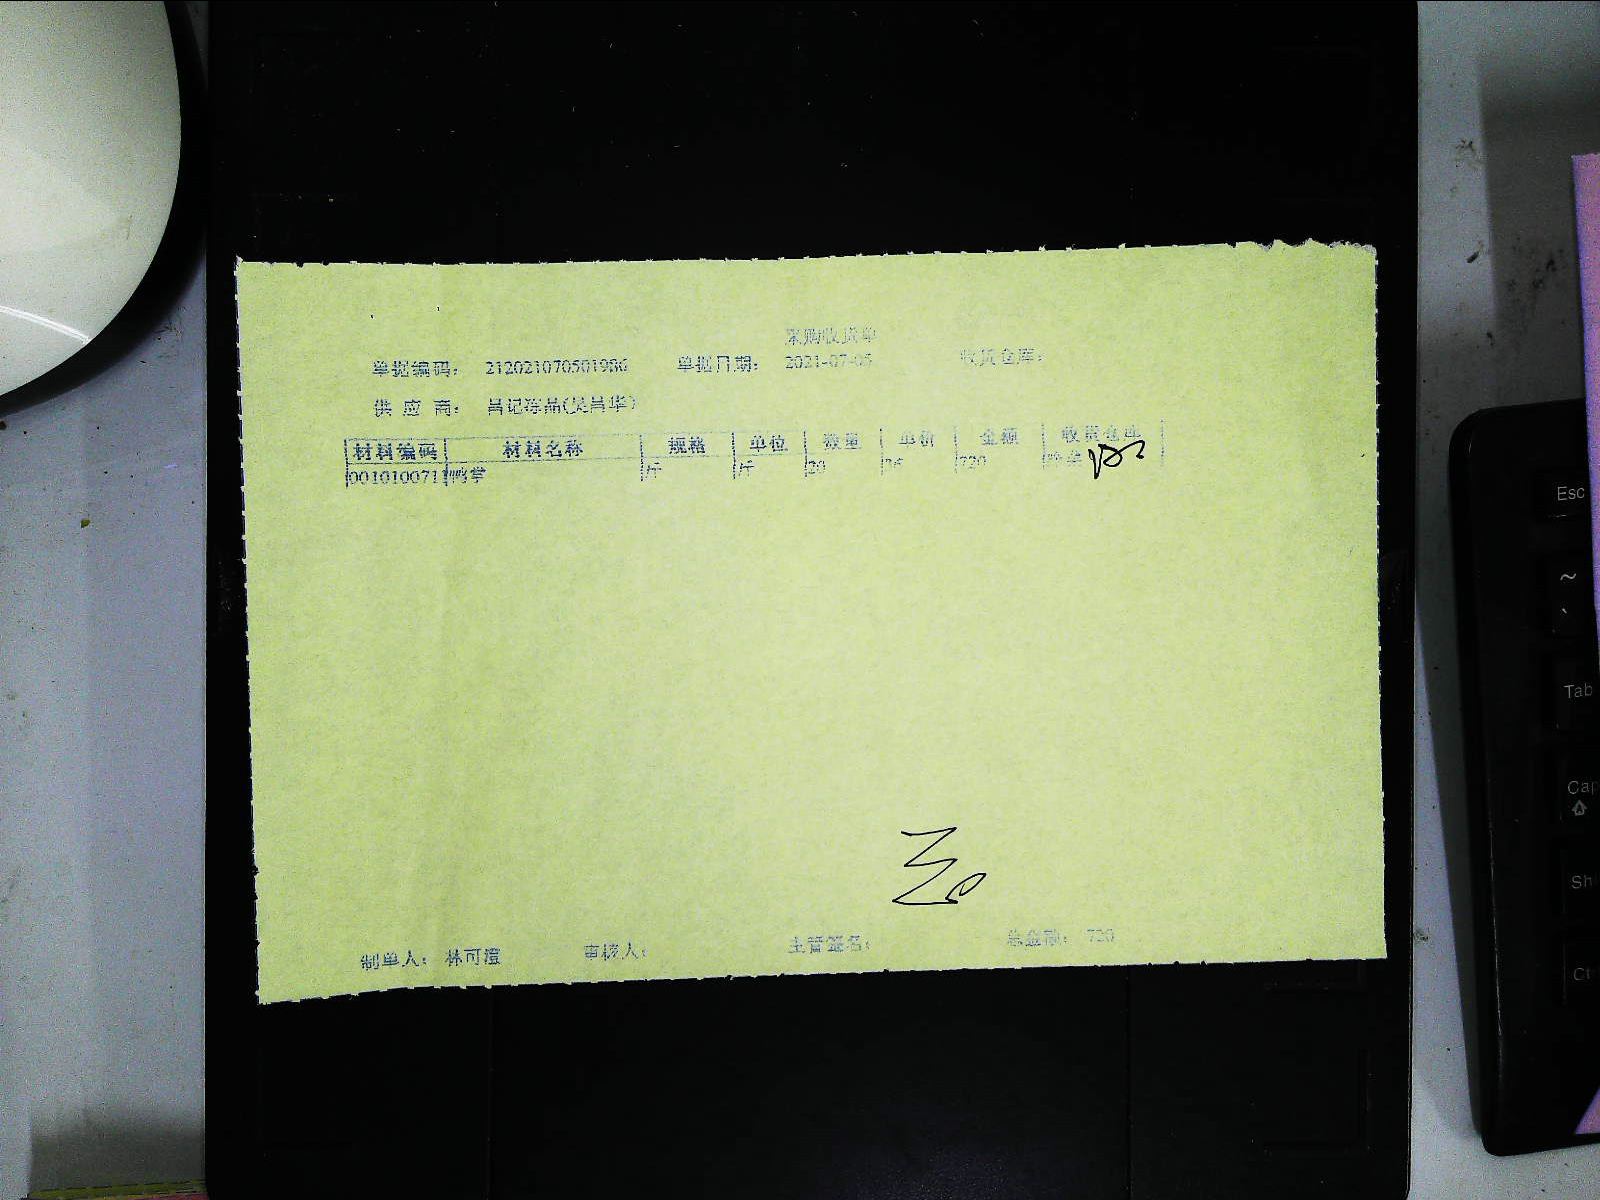 采购收货单
单据编码： 212021070501986 单据日期： 2021-07-05 收货仓库：
供 应 商： 昌记冻品(吴昌华)
材料编码 材料名称 规格 单位 数量 单价 金额 收货仓库
001010071 鸭掌 斤 斤 20 36 720
制单人： 林可澄 审核人： 主管签名： 总金额： 720
Esc
~
`
Tab
Cap
Sh
Ct